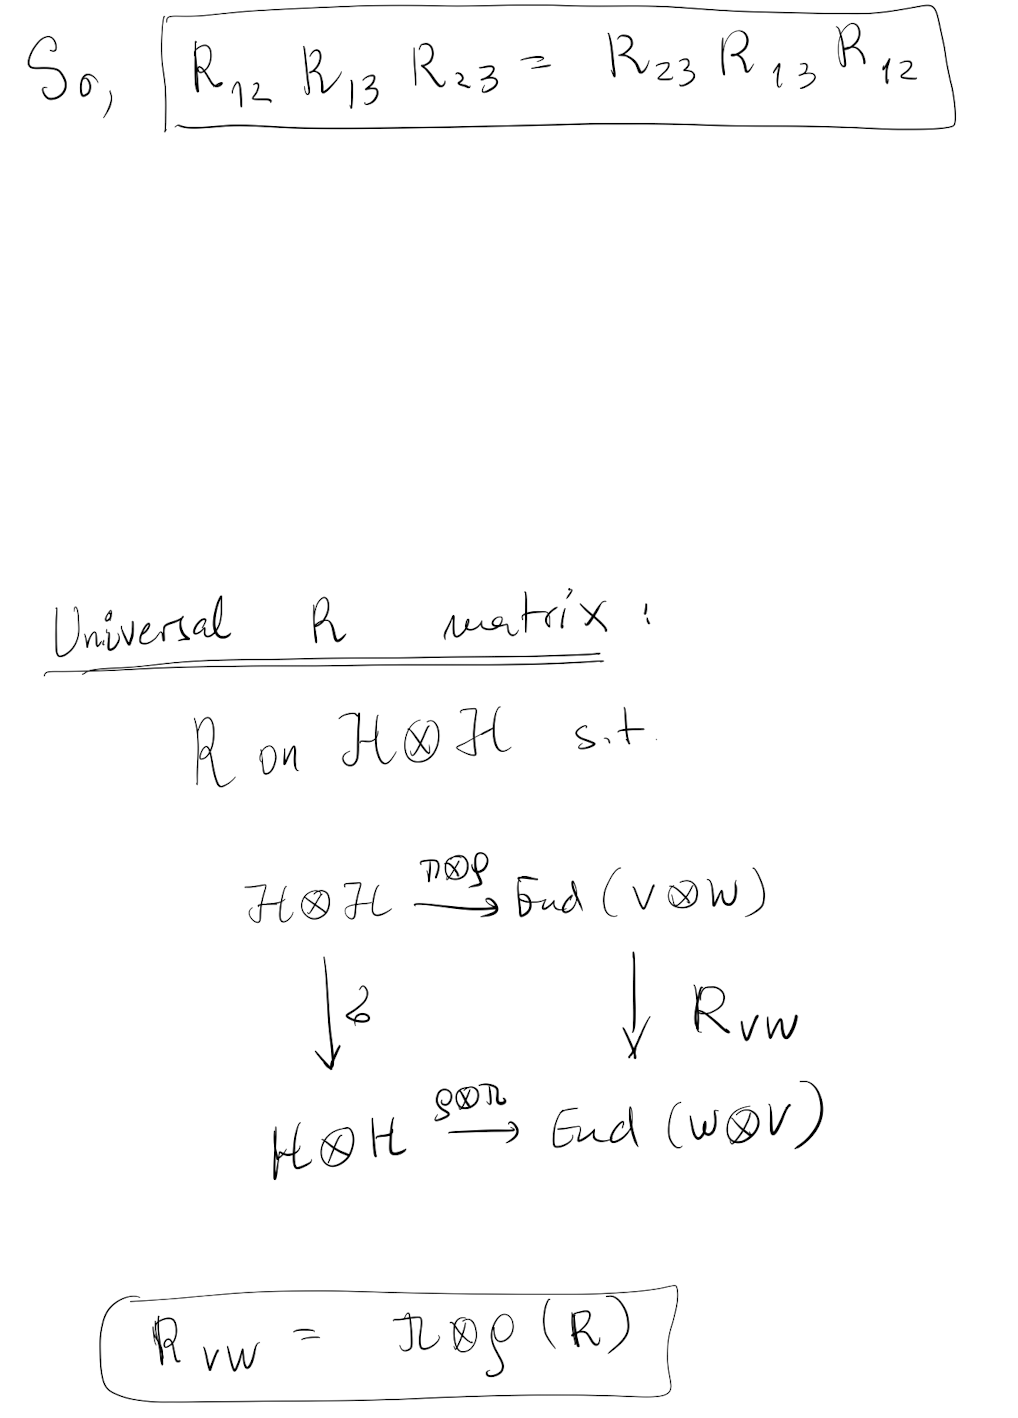 So, R₁₂ R₁₃ R₂₃ = R₂₃ R₁₃ R₁₂
Universal R matrix :
R on H⊗H s.t.
H⊗H π⊗ρ → End (V⊗W)
↓ σ ↓ R_VW
H⊗H ρ⊗π → End (W⊗V)
R_VW = π⊗ρ (R)